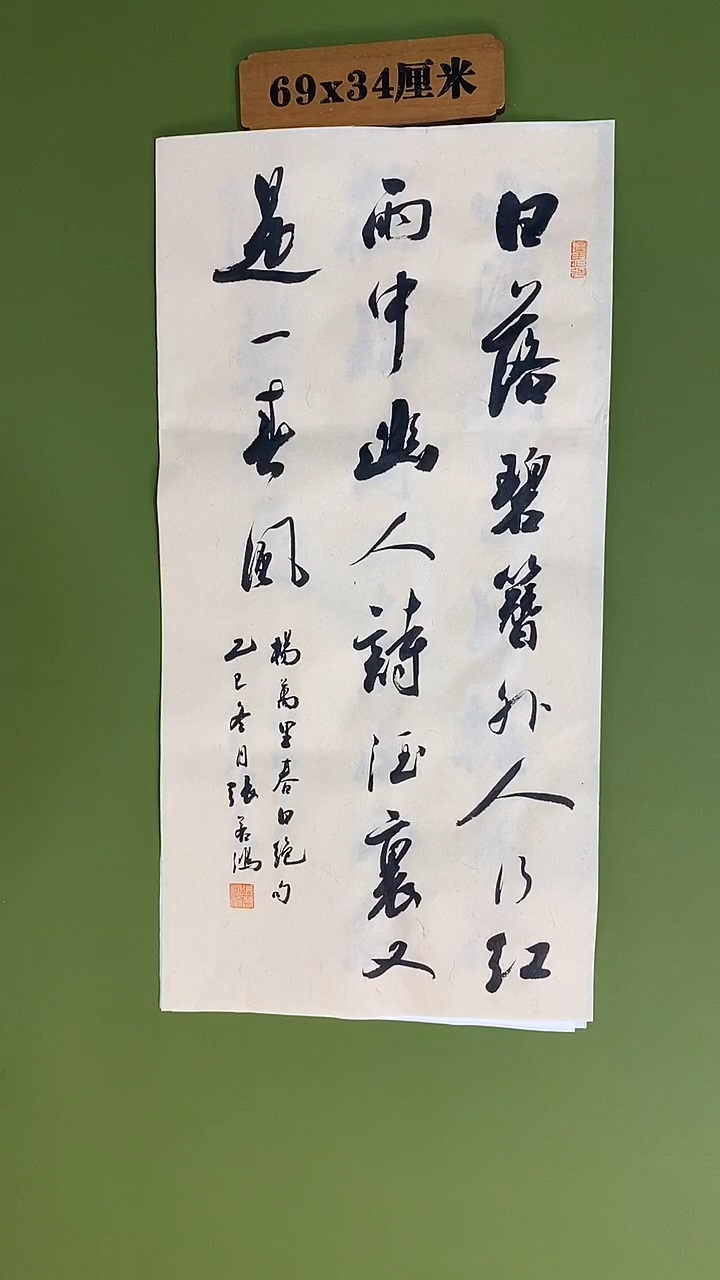 69x34厘米
日落碧簪外人行紅
雨中幽人詩酒裏又
是一春風
楊萬里春日絶句
乙巳冬月張